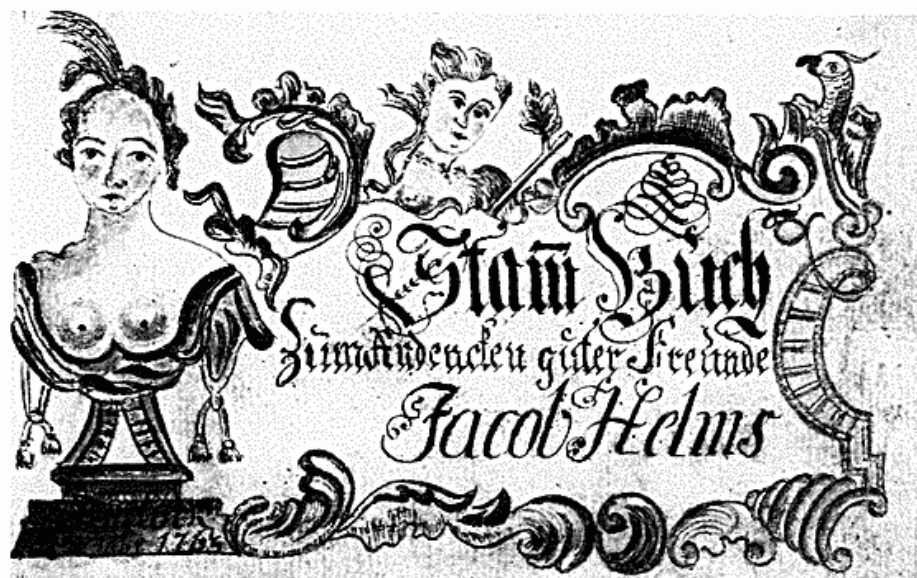 Stam̅ Buch
Zum Andencken guter Freunde
Jacob Helms